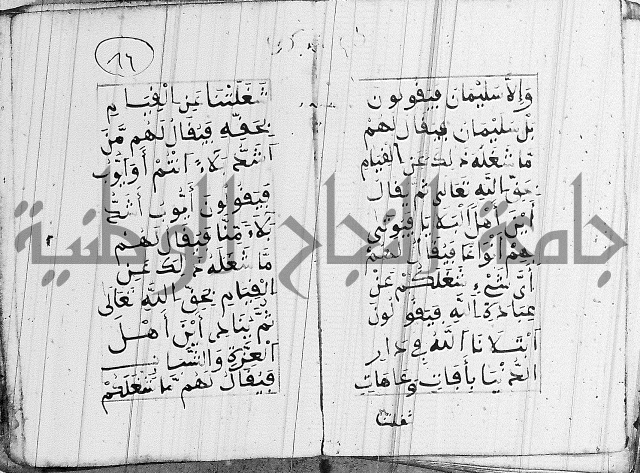 وإلا سليمان فيقولون
بل سليمان فيقال لهم
ما شغله ذلك عن القيام
بحق الله تعالى ثم يقال
أين أهل البلايا فيؤتى
بهم أنواعا فيقال لهم
أي شيء شغلكم عن
عبادة الله فيقولون
ابتلانا الله في دار
الدنيا بآفات وعاهات
شغلتنا
١٦
شغلتنا عن القيام
بحقه فيقال لهم من
أشد بلاء أنتم أو أيوب
فيقولون أيوب أشد
بلاء منا فيقال لهم
ما شغله ذلك عن
القيام بحق الله تعالى
ثم ينادى أين أهل
العزة والشباب
فيقال لهم ما شغلكم
جامعة النجاح الوطنية